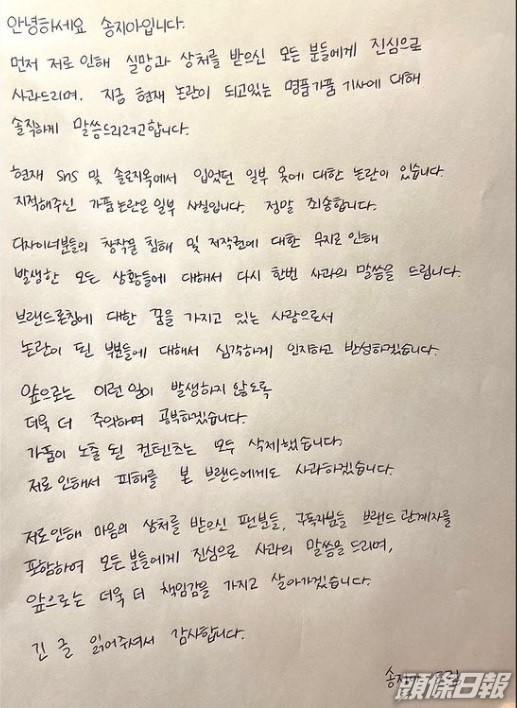 안녕하세요 송지아입니다.
먼저 저로 인해 실망과 상처를 받으신 모든 분들에게 진심으로
사과드리며, 지금 현재 논란이 되고있는 명품가품 기사에 대해
솔직하게 말씀드리려고합니다.
현재 sns 및 솔로지옥에서 입었던 일부 옷에 대한 논란이 있습니다.
지적해주신 가품논란은 일부 사실입니다. 정말 죄송합니다.
디자이너분들의 창작물 침해 및 저작권에 대한 무지로 인해
발생한 모든 상황들에 대해서 다시 한번 사과의 말씀을 드립니다.
브랜드론칭에 대한 꿈을 가지고 있는 사람으로서
논란이 된 부분들에 대해서 심각하게 인지하고 반성하겠습니다.
앞으로는 이런 일이 발생하지 않도록
더욱 더 주의하며 공부하겠습니다.
가품이 노출 된 컨텐츠는 모두 삭제했습니다.
저로 인해서 피해를 본 브랜드에게도 사과하겠습니다.
저로인해 마음의 상처를 받으신 팬분들, 구독자분들 브랜드 관계자를
포함하여 모든 분들에게 진심으로 사과의 말씀을 드리며,
앞으로는 더욱 더 책임감을 가지고 살아가겠습니다.
긴 글 읽어주셔서 감사합니다.
송지아
頭條日報